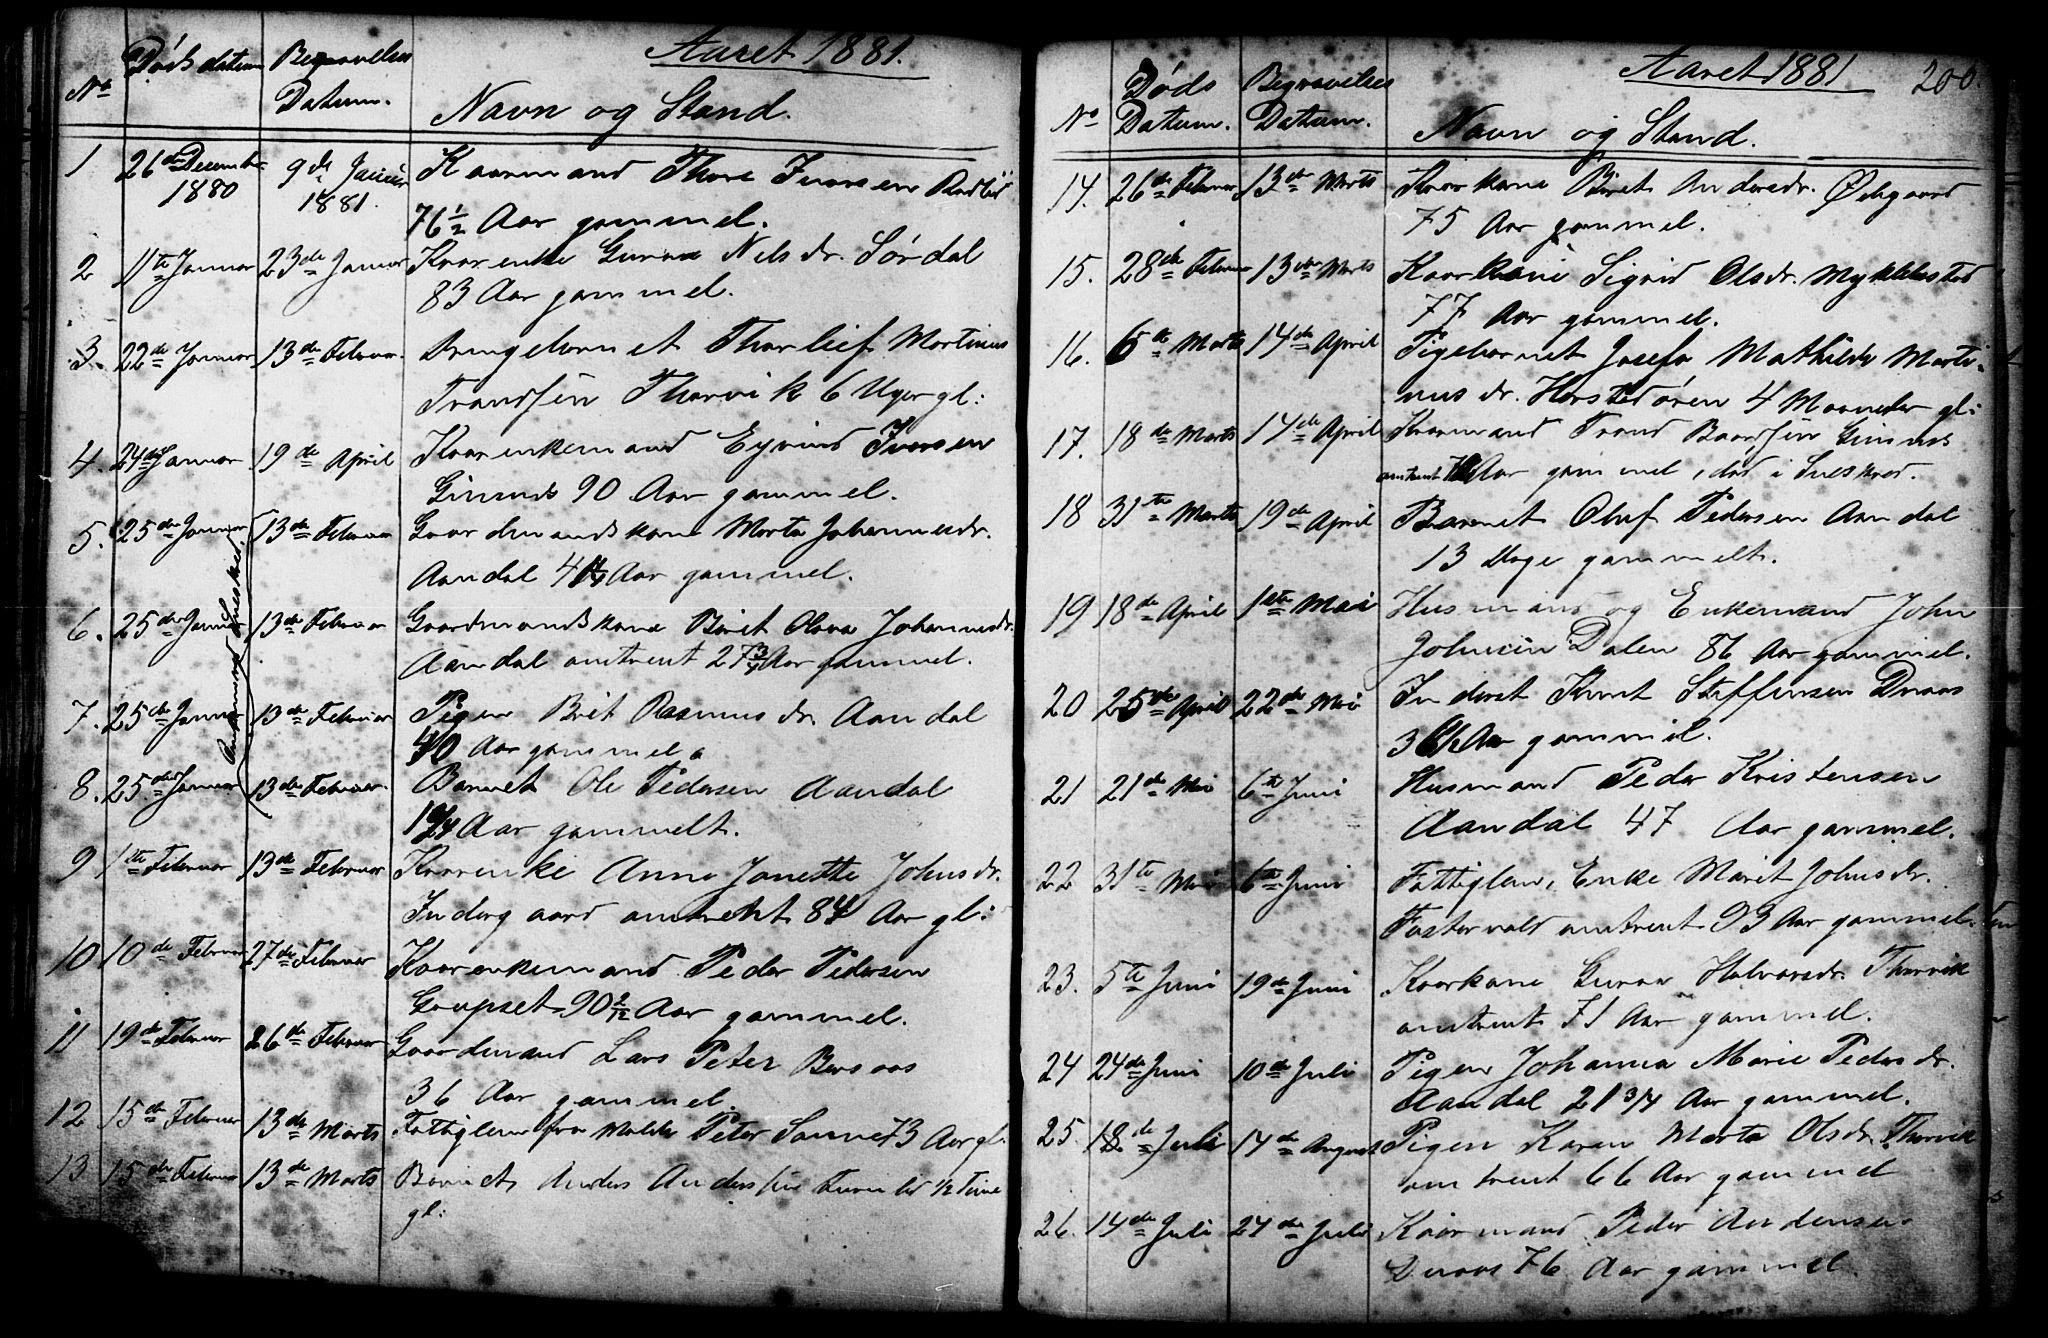 Aaret 1881.
No Døds datum Begravelses Datum. Navn og Stand.
1 26de December 1880 9de Januar 1881. Kaarmand Thore Iversen
76 1/2 Aar gammel.
2 11te Januar 23de Januar Kaarenke Guroe Nilsdr. Sørdal
83 Aar gammel.
3. 22de Januar 13de Februar. Drengebarnet Thorlief Martinus
Trondsen Thorvik 6 Uger gl:
4. 24de Januar 19de April Kaarenkemand Eyvind Iversen
Ginnæs 90 Aar gammel.
5. 25de Januar 13de Februar Gaardmandskone Marta Johannesdr.
Aandal Aar gammel.
6. 25de Januar 13de Februar Gaardmandskone Birit Olava Johannesdr.
Aandal omtrent 27 3/4 Aar gammel.
7. 25de Januar 13de Februar Pigen Brit Rasmusdr. Aandal
40 Aar gammel.
8. 25de Januar 13de Februar. Barnet Ole Pedersen Aandal
Aar gammelt.
Omkommed i Sneskred.
9 1te Februar 13de Februar Kaarenke Anne Janette Johnsdr.
Indergaard omtrent 84 Aar gl:
10 10de Februar 27de Februar Kaarenkemand Peder Pedersen
Goupset 90 2/12 Aar gammel.
11 19de Februar 26de Februar Gaardmand Lars Peter Bersaas
36 Aar gammel.
12 15de Februar 13de Marts Fattiglem fra Molde Peter Sanne 73 Aar gl.
13 15de Februar 13de Marts Barnet Anders Andersen 1/2 Time
gl:
Aaret 1881 200.
No Døds Datum. Begravelses Datum. Navn og Stand.
14. 26de Februar 13de Marts Kaarkone Birit Andersdr. Ødegaard
75 Aar gammel.
15. 28de Februar 13de Marts Kaarkone Sigrid Olsdr. Myklebostad
77 Aar gammel.
16. 6te Marts 14de April Pigebarnet Josefa Mathilde Marti-
nusdr. Horstedøren 4 Maaneder gl:
17. 18de Marts 14de April Kaarmand Trond Baardsen Ginnæs
omtrent Aar gammel, død i Sneskred.
18 31te Marts 19de April Barnet Oluf Pedersen Aandal
13 Dage gammelt.
19 18de April 1ste Mai Husmand og Enkemand John
Johnsen Dalen 86 Aar gammel.
20 25de April 22de Mai Inderst Knut Steffensen Devaas
Aar gammel.
21 21de Mai 6te Juni Husmand Peder Kristensen
Aandal 47 Aar gammel.
22 31te Mai 6te Juni Fattiglem, Enke Marit Johnsdr.
Fostervold omtrent 93 Aar gammel.
23. 5te Juni 19de Juni Kaarkone Guroe Halvorsdr. Thorvik
omtrent 71 Aar gammel.
24 24de Juni 10de Juli Pigen Johanna Marie Pedersdr.
Aandal 21 3/4 Aar gammel.
25. 18de Juli 14de August Pigen Karen Marta Olsdr. Thorvik
omtrent 66 Aar gammel
26. 14de Juli 24de Juli Kaarmand Peder Andersen
Devaas 76 Aar gammel.